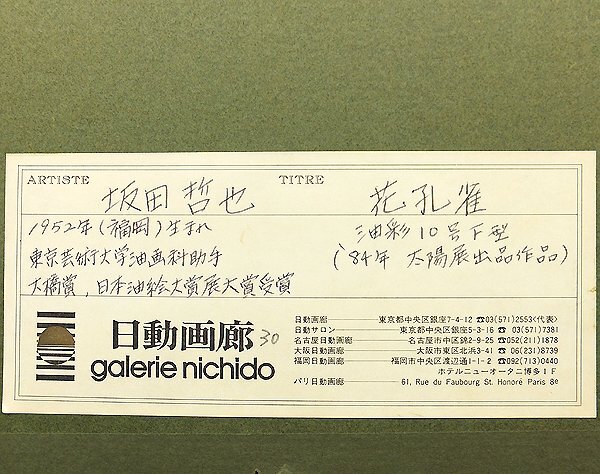 ARTISTE 坂田哲也 TITRE 花孔雀
1952年(福岡)生まれ 油彩10号F型
東京芸術大学油画科助手 ('84年 太陽展出品作品)
大橋賞,日本油絵大賞展大賞受賞
日動画廊 30
galerie nichido
日動画廊 東京都中央区銀座7-4-12 ☎03(571)2553<代表>
日動サロン 東京都中央区銀座5-3-16 ☎ 03(571)7381
名古屋日動画廊 名古屋市中区錦2-9-25 ☎052(211)1878
大阪日動画廊 大阪市東区北浜3-41 ☎ 06(231)8739
福岡日動画廊 福岡市中央区渡辺通1-1-2 ☎092(713)0440
ホテルニューオータニ博多1F
パリ日動画廊 61, Rue du Faubourg St. Honoré Paris 8e